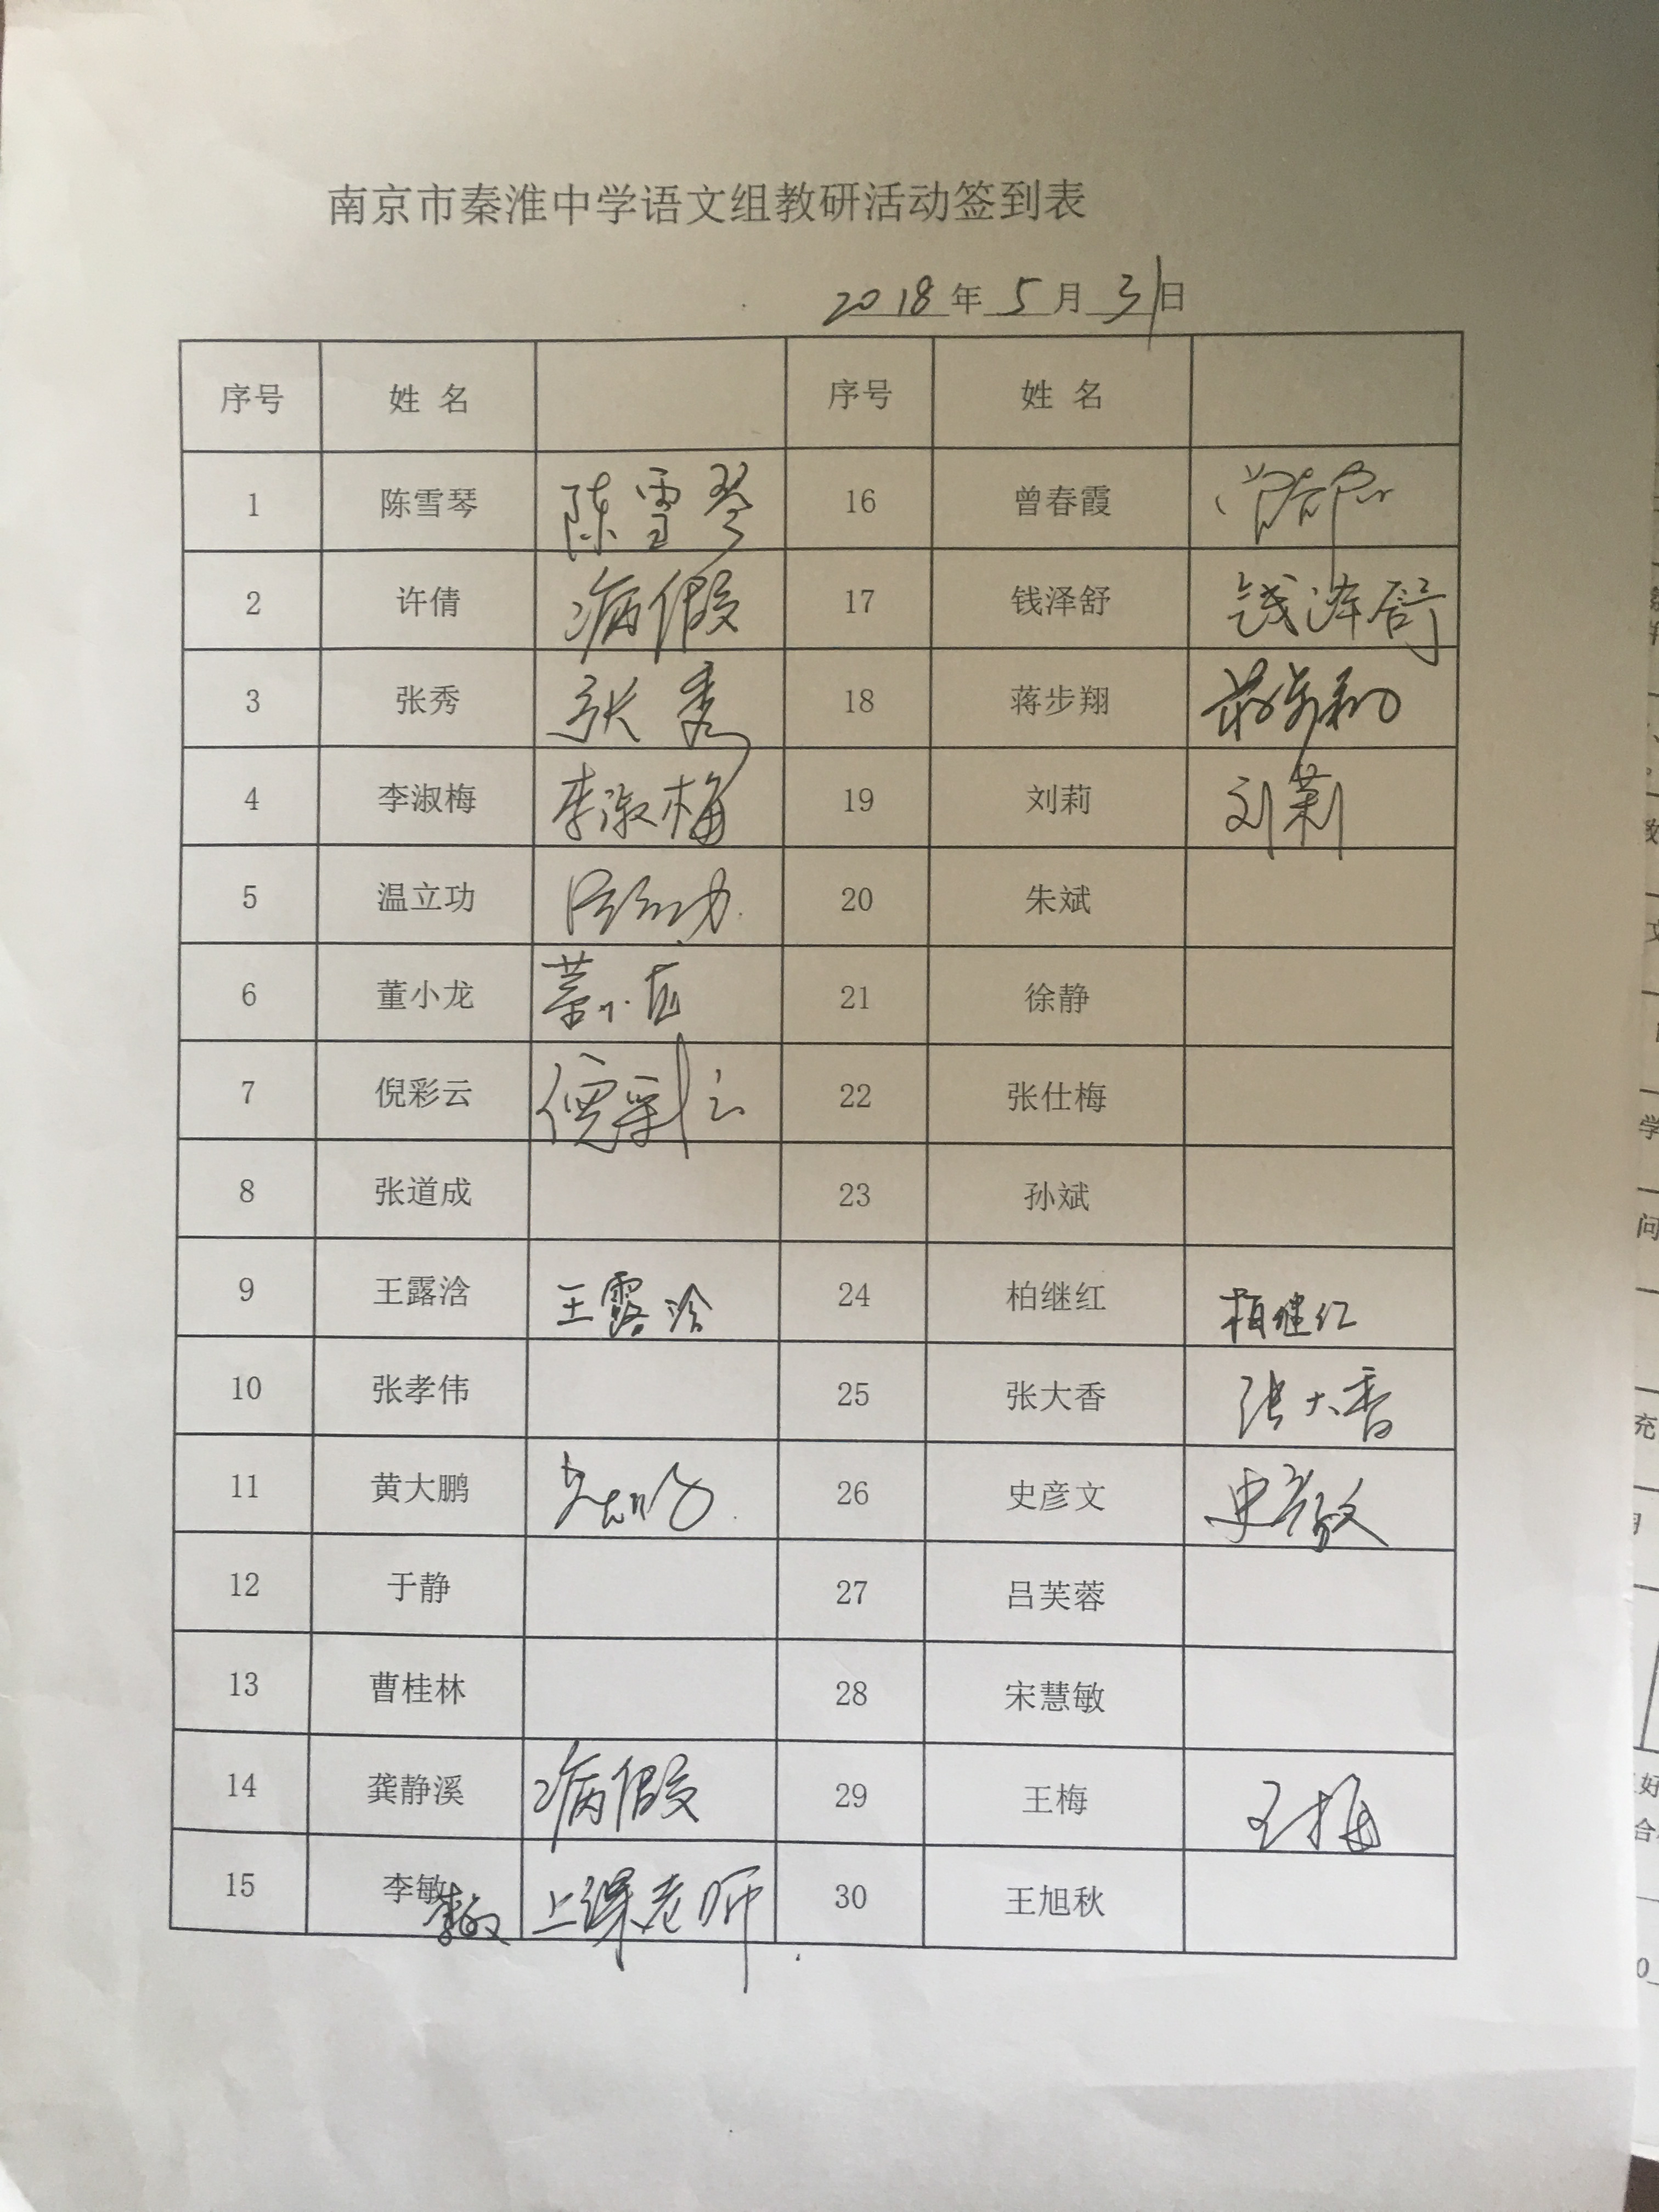 南京市秦淮中学语文组教研活动签到表
2018年5月31日
序号 姓名 序号 姓名
1 陈雪琴 陈雪琴 16 曾春霞
2 许倩 病假 17 钱泽舒 钱泽舒
3 张秀 张秀 18 蒋步翔 蒋步翔
4 李淑梅 李淑梅 19 刘莉 刘莉
5 温立功 温立功 20 朱斌
6 董小龙 董小龙 21 徐静
7 倪彩云 倪彩云 22 张仕梅
8 张道成 23 孙斌
9 王露浛 王露浛 24 柏继红 柏继红
10 张孝伟 25 张大香 张大香
11 黄大鹏 26 史彦文 史彦文
12 于静 27 吕芙蓉
13 曹桂林 28 宋慧敏
14 龚静溪 病假 29 王梅 王梅
15 李敏 李敏 上课老师 30 王旭秋